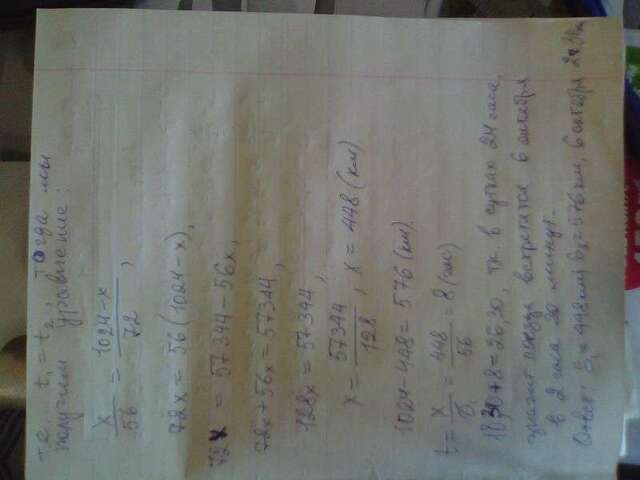 т.е. t₁ = t₂, тогда мы
получаем уравнение:
x/56 = (1024-x)/72,
72x = 56(1024-x),
72x = 57344-56x,
72x+56x=57344,
128x = 57344,
x = 57344/128, x = 448 (км)
1024-448=576 (км).
t = x/v₁ = 448/56 = 8 (час)
18.30+8=26.30, т.к. в сутках 24 часа,
значит поезда встретятся 6 октября
в 2 часа 30 минут.
Ответ: S₁ = 448 км, S₂ = 576 км, 6 октября